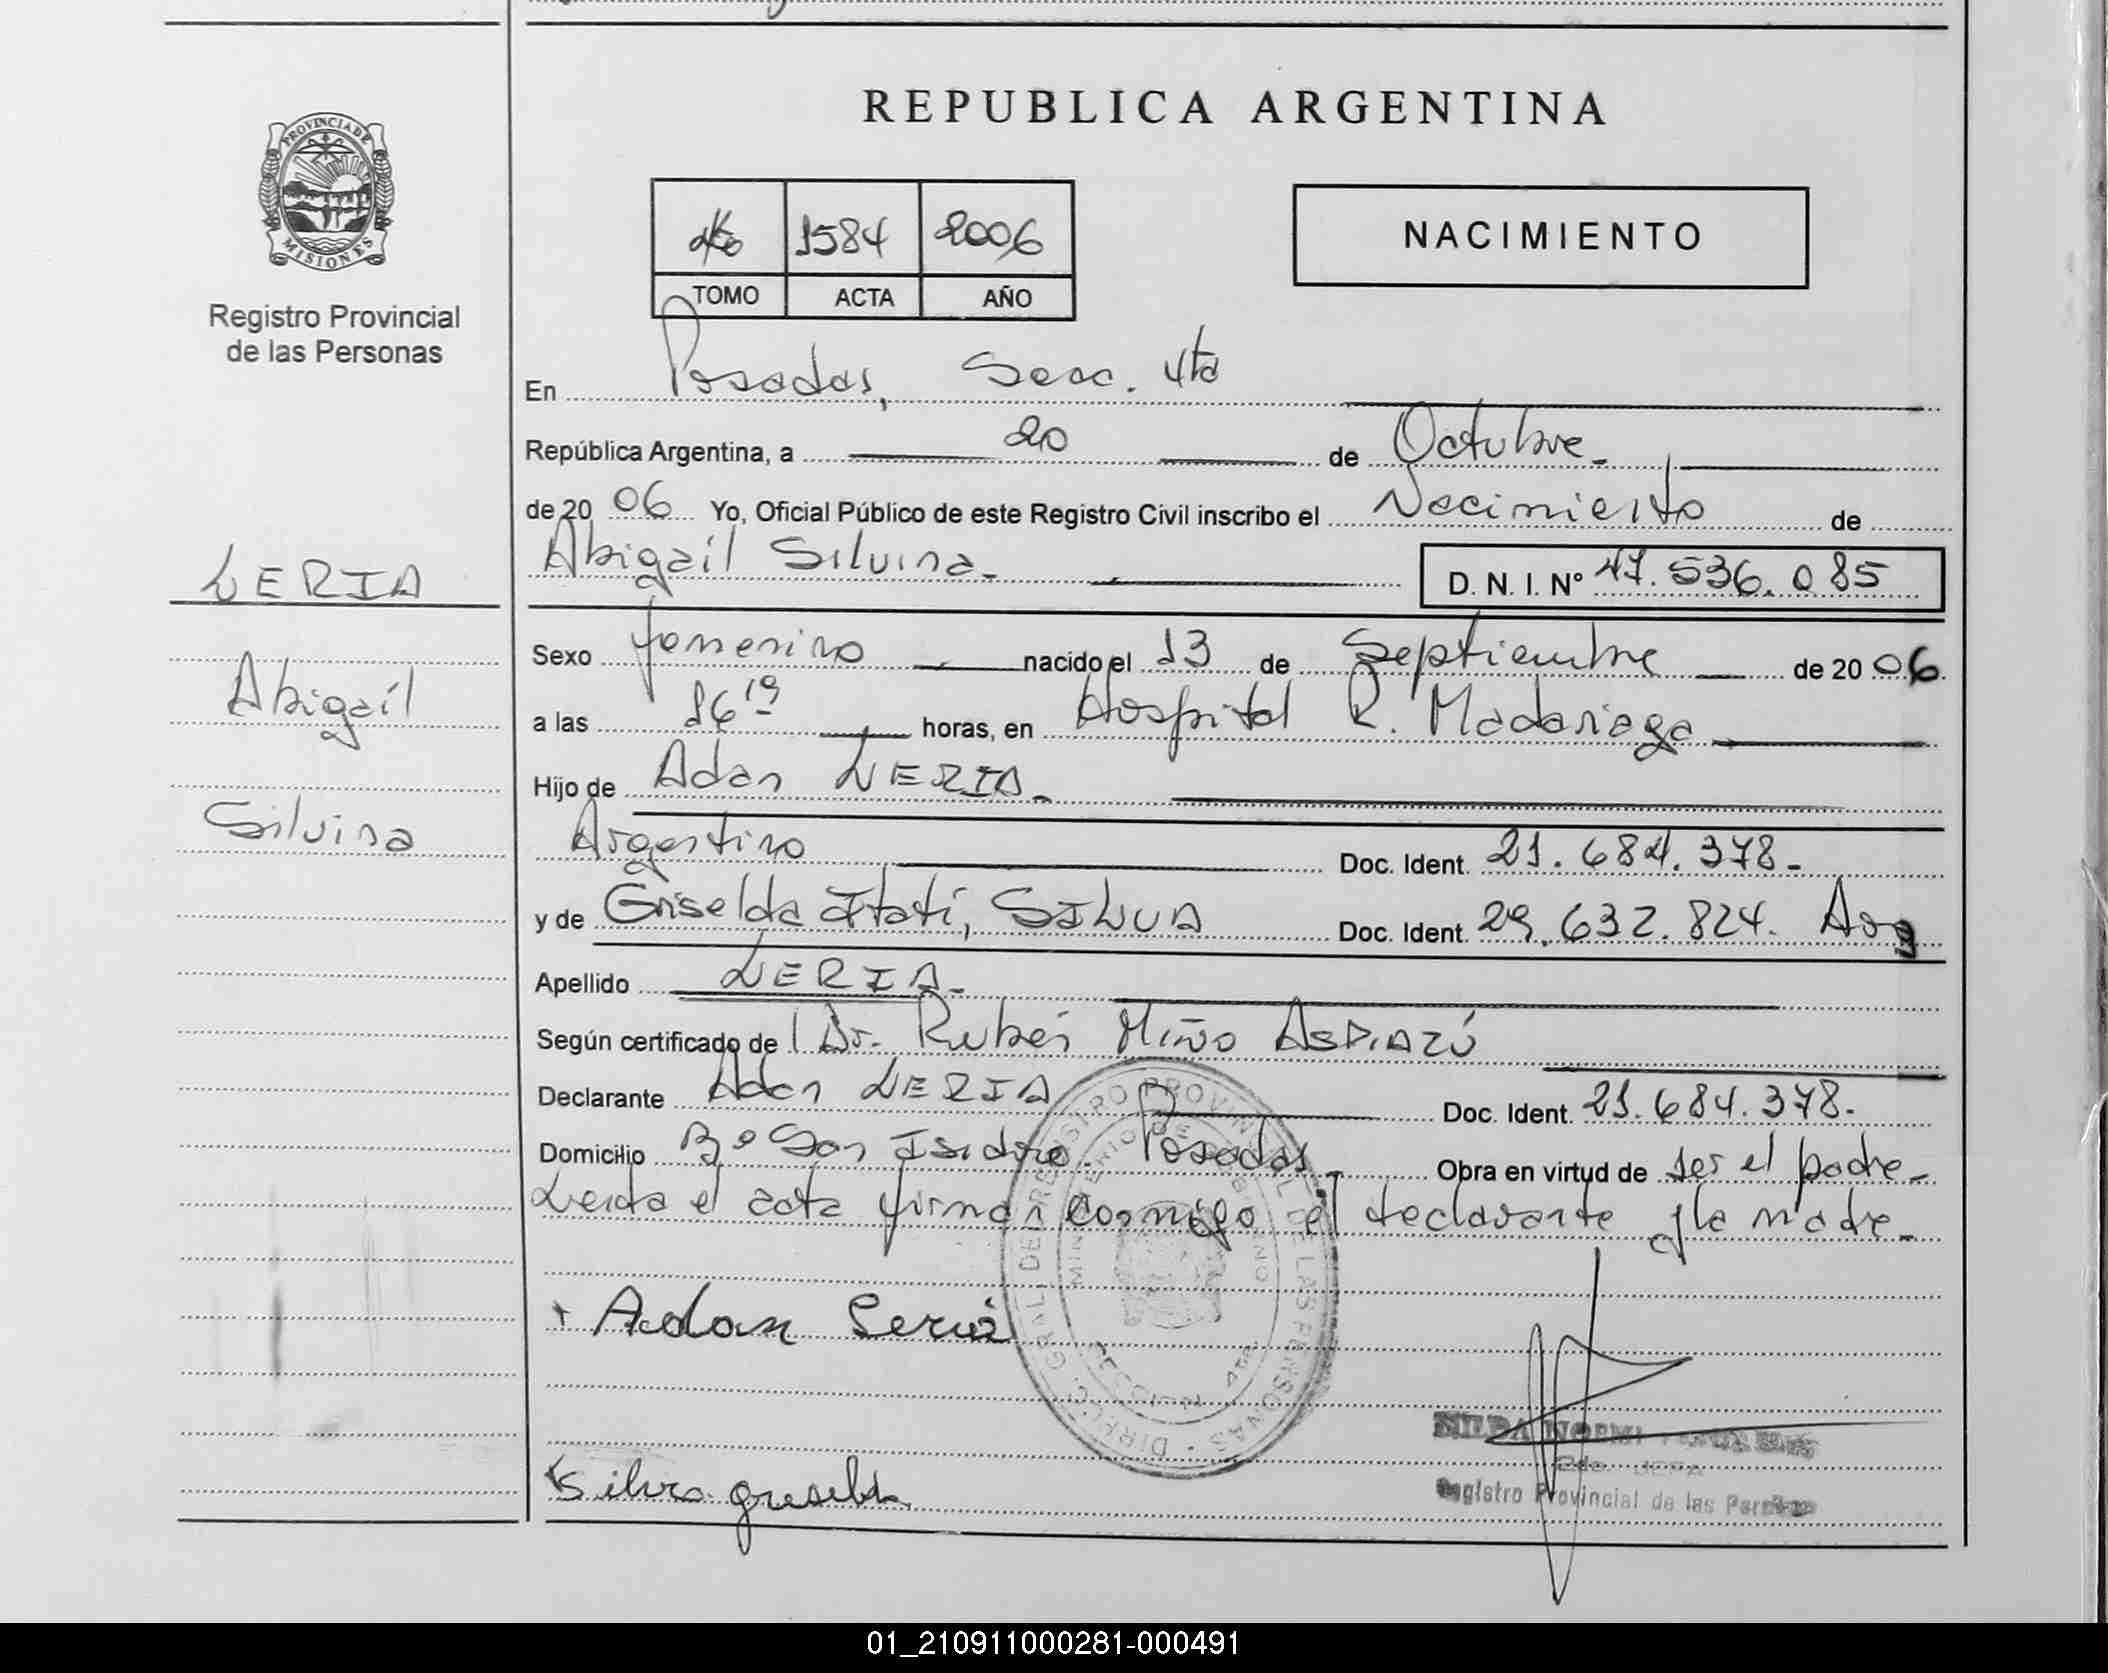 REPUBLICA ARGENTINA
PROVINCIA DE
MISIONES
Registro Provincial
de las Personas
1584 2006
TOMO ACTA AÑO
NACIMIENTO
En Posadas, Secc. 4ta
República Argentina, a 20 de Octubre
de 2006 Yo, Oficial Público de este Registro Civil inscribo el Nacimiento de
Abigaíl Silvina D. N. I. Nº 47.536.085
LERIA
Abigaíl
Silvina
Sexo femenino nacido el 13 de Septiembre de 2006
a las 16 19 horas, en Hospital R. Madariaga
Hijo de Adan LERIA
Argentino Doc. Ident. 21.684.378
y de Griselda Itatí, SILVA Doc. Ident. 29.632.824. Arg
Apellido LERIA
Según certificado de Dr. Rubén Miño ASPIAZÚ
Declarante Adan LERIA Doc. Ident. 21.684.378
Domicilio Bº San Isidro. Posadas Obra en virtud de ser el padre
Leida el acta firman conmigo el declarante y la madre
Adan Leria
Silva griselda
2do. JEFA
Registro Provincial de las Personas
01_210911000281-000491